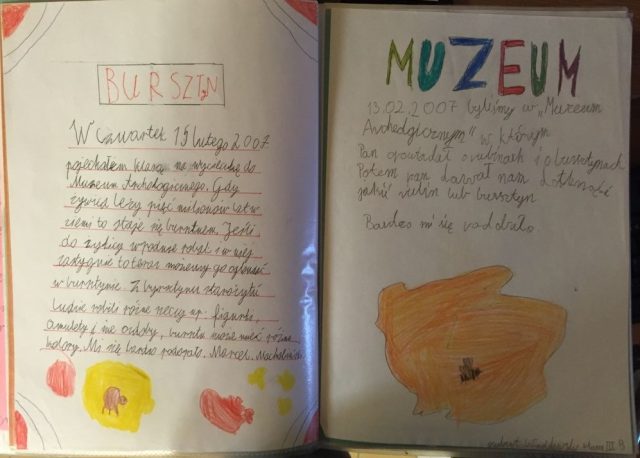 BURSZTYN
W czwartek 15 lutego 2007
pojechałem klasą na wycieczkę do
Muzeum Archeologicznego. Gdy
żywica leży pięć milionów lat w
ziemi to staje się bursztynem. Jeśli
do żywicy wpadnie robal i w niej
zastygnie to teraz możemy go oglądać
w bursztynie. Z bursztynu starożytni
ludzie robili różne rzeczy np. figurki,
amulety i inne ozdoby, bursztyn może mieć różne
kolory. Mi się bardzo podobało. Marcel
MUZEUM
13.02,2007 byliśmy w „Muzeum
Archeologicznym" w którym
Pan opowiadał o rubinach i o bursztynach
Potem pan dawał nam dotknąć
jakiś rubin lub bursztyn
Bardzo mi się podobało.
klasa III B